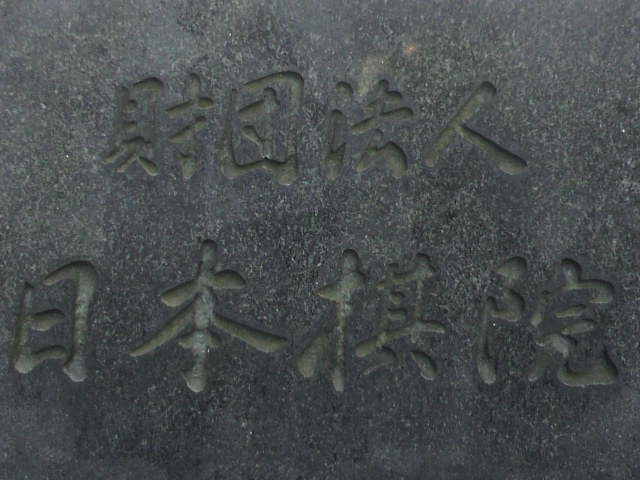 財団法人
日本棋院